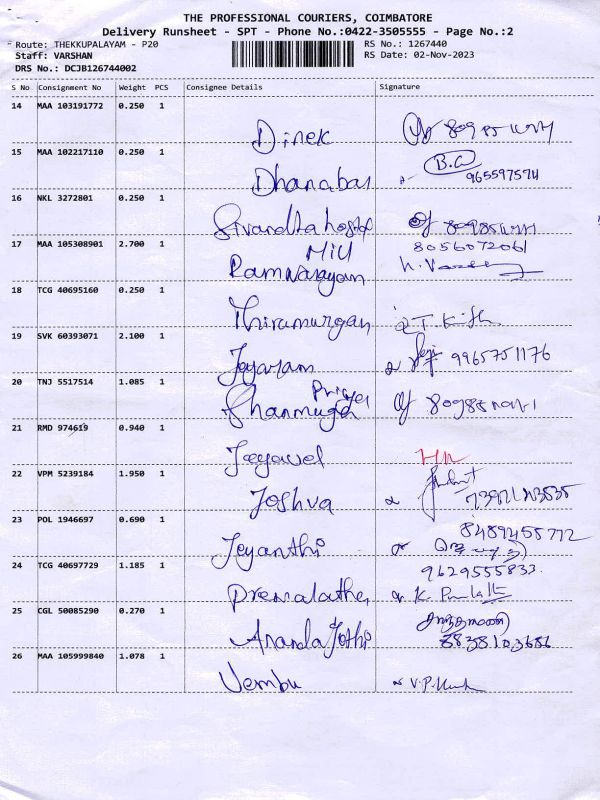 THE PROFESSIONAL COURIERS, COIMBATORE
Delivery Runsheet - SPT - Phone No.:0422-3505555 - Page No.:2
Route: THEKKUPALAYAM - P20
RS No.: 1267440
Staff: VARSHAN
RS Date: 02-Nov-2023
DRS No.: DCJB126744002
S No Consignment No Weight PCS Consignee Details Signature
14 MAA 103191772 0.250 1
Dinek
15 MAA 102217110 0.250 1 B.C
Dhanabal 965597574
16 NKL 3272801 0.250 1
17 MAA 105308901 2.700 1 Mill 8056072061
Ramnarayam
18 TCG 40695160 0.250 1
Thirumurgan
19 SVK 60393071 2.100 1
Jayaram 9965751176
20 TNJ 5517514 1.085 1 Priya
Shanmuga
21 RMD 974619 0.940 1
Jayavel
22 VPM 5239184 1.950 1
Joshva
23 POL 1946697 0.690 1 8489455772
Jeyanthi
24 TCG 40697729 1.185 1 9629555833
Premalatha K.
25 CGL 50085290 0.270 1
Ananda Jothi 8838103686
26 MAA 105999840 1.078 1
Vembu V.P.